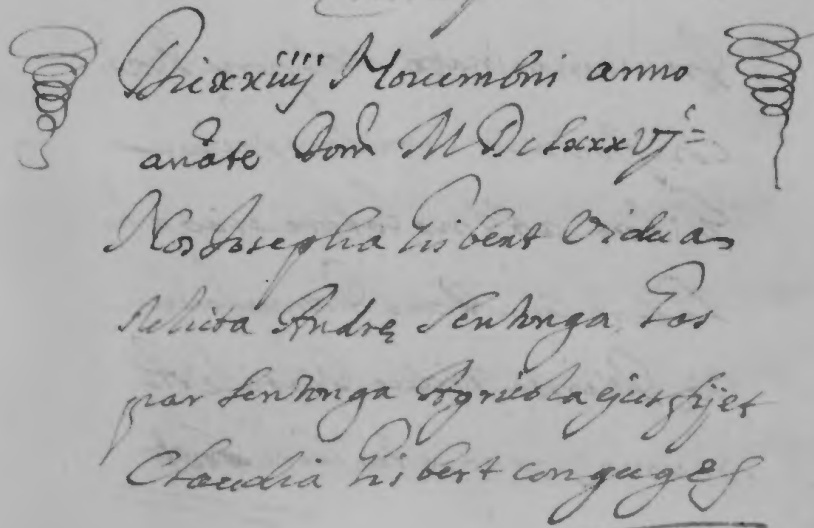 Die xxiiij Nouembris anno
a nãte Dom̃ MDClxxxvj =
Nos Josepha Gisbert Vidua
relicta Andrę Sentonga Gas
par Sentonga Agricola ejus fij et
Claudia Gisbert conguges